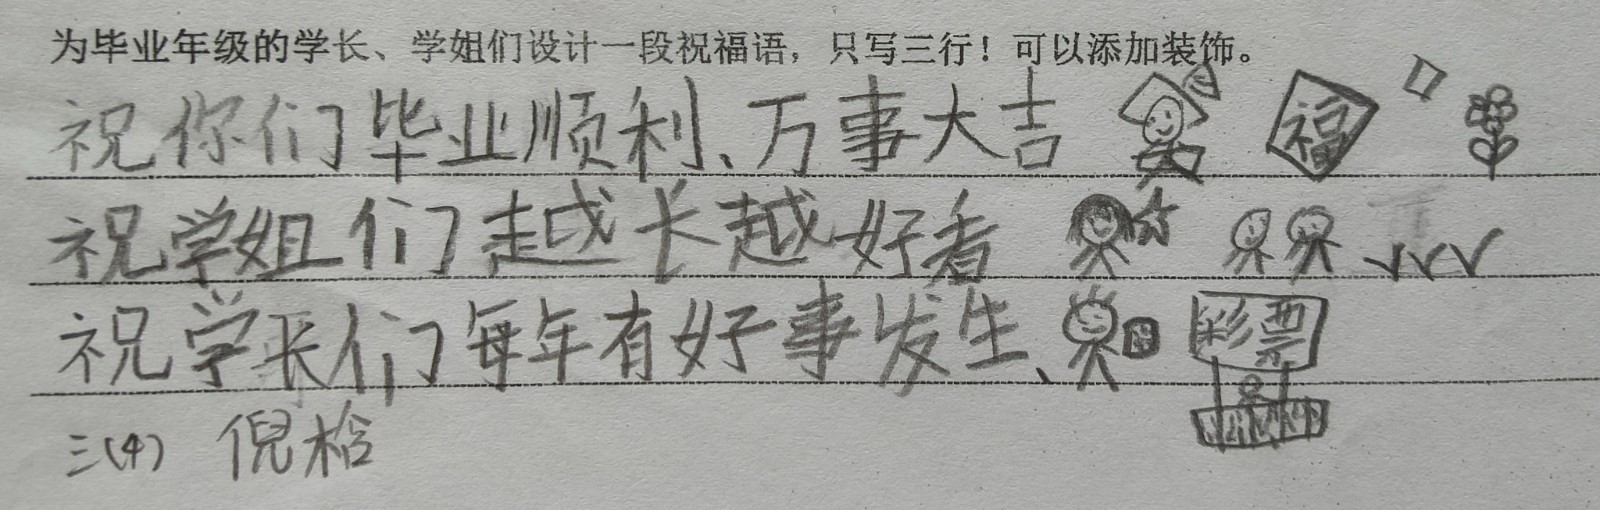 为毕业年级的学长、学姐们设计一段祝福语，只写三行！可以添加装饰。
祝你们毕业顺利、万事大吉 福
祝学姐们越长越好看
祝学长们每年有好事发生、 彩票
三(4) 倪